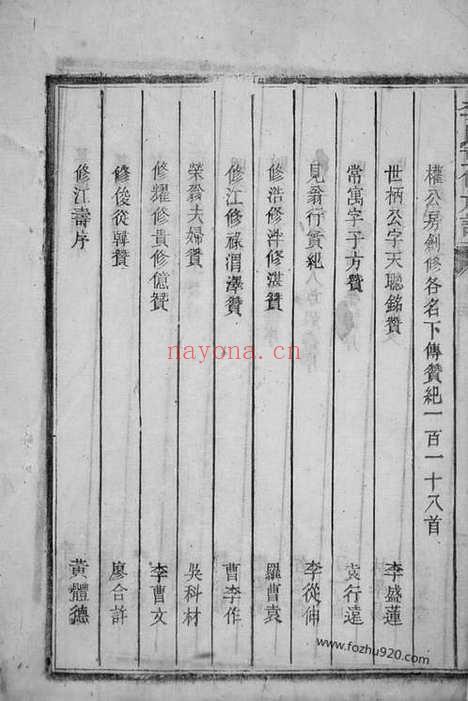 權公房創修各名下傳贊紀一百一十八首
世柄公字天聰銘贊 李盛蓮
常寓字子方贊 袁行遠
見翁行實紀 李從伸
修浩修泮修湛贊 羅曹袁
修江修祿渭澤贊 曹李作
榮翁夫婦贊 吳科材
修耀修貴修億贊 李曹文
修俊從韓贊 廖合許
修江壽序 黃體德
nayona.cn
www.fozhu920.com